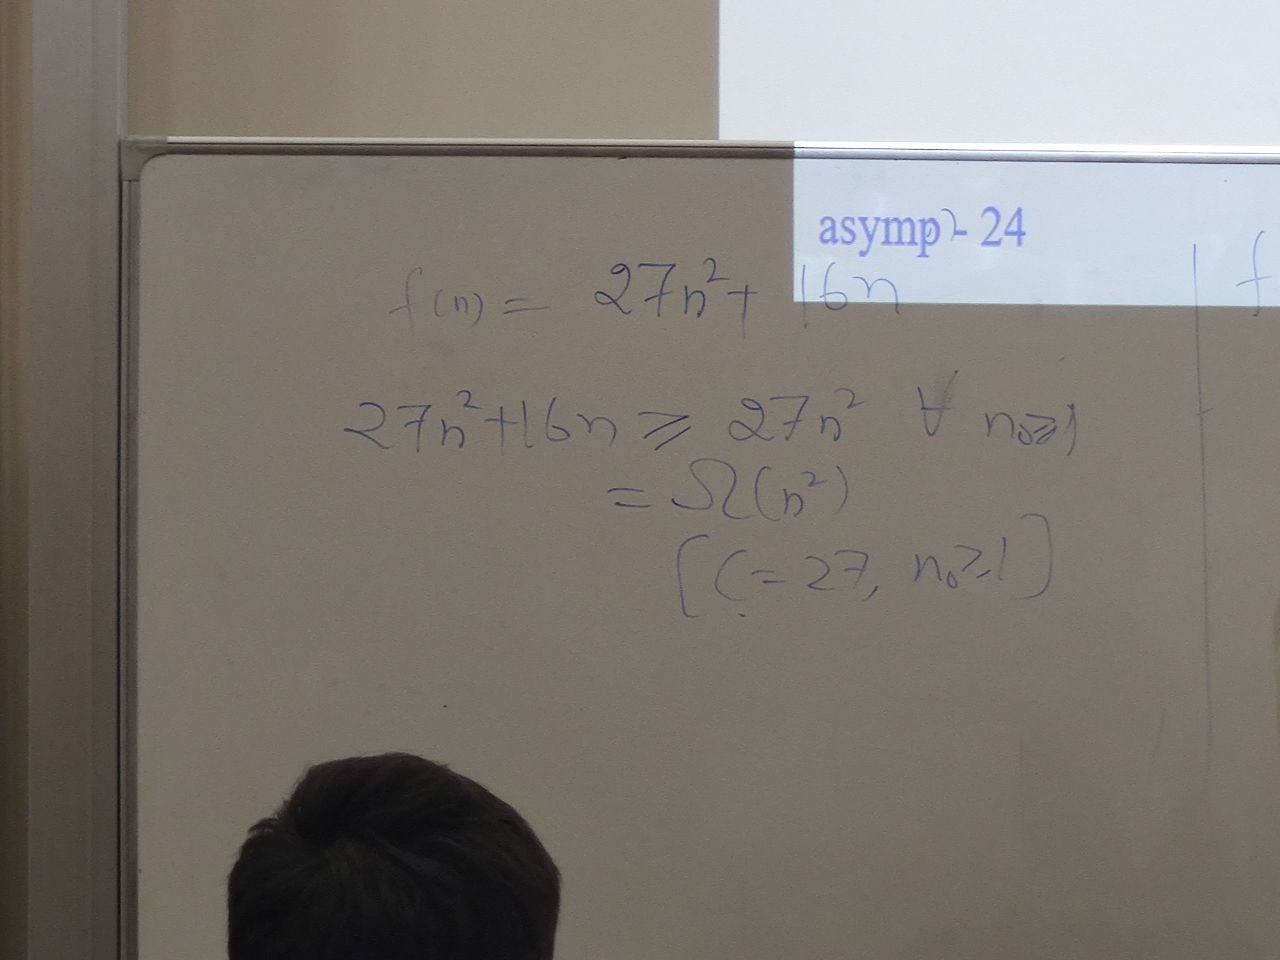 asymp - 24
f(n) = 27n² + 16n
27n² + 16n ≥ 27n² ∀ n₀ ≥ 1
= Ω(n²)
[C = 27, n₀ ≥ 1]
f